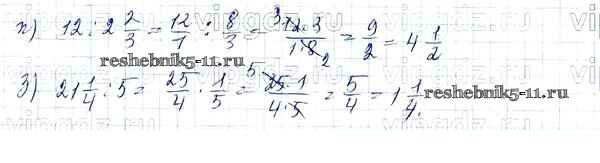 ж) 12 : 2 2/3 = 12/1 : 8/3 = 12·3/1·8 = 9/2 = 4 1/2
reshebnik5-11.ru
з) 21 1/4 : 5 = 25/4 : 1/5 = 25·1/4·5 = 5/4 = 1 1/4
reshebnik5-11.ru